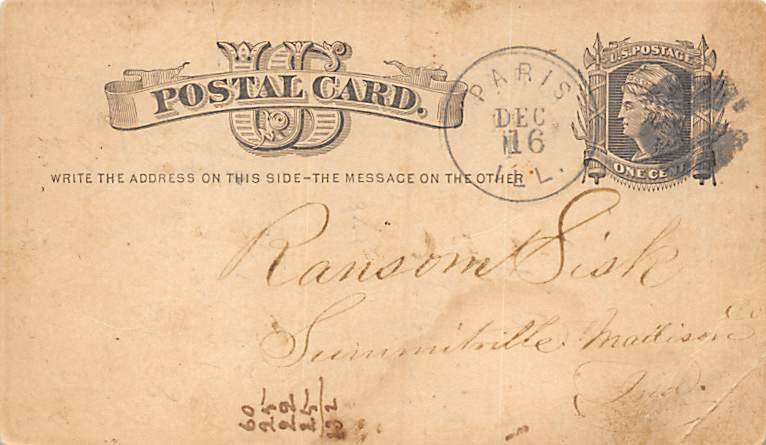 US
POSTAL CARD.
U.S. POSTAGE
ONE CENT
PARIS
DEC
16
ILL.
WRITE THE ADDRESS ON THIS SIDE-THE MESSAGE ON THE OTHER
Ransom Sisk
Summitville Madison Co
Ind.
60
25
22
25
132